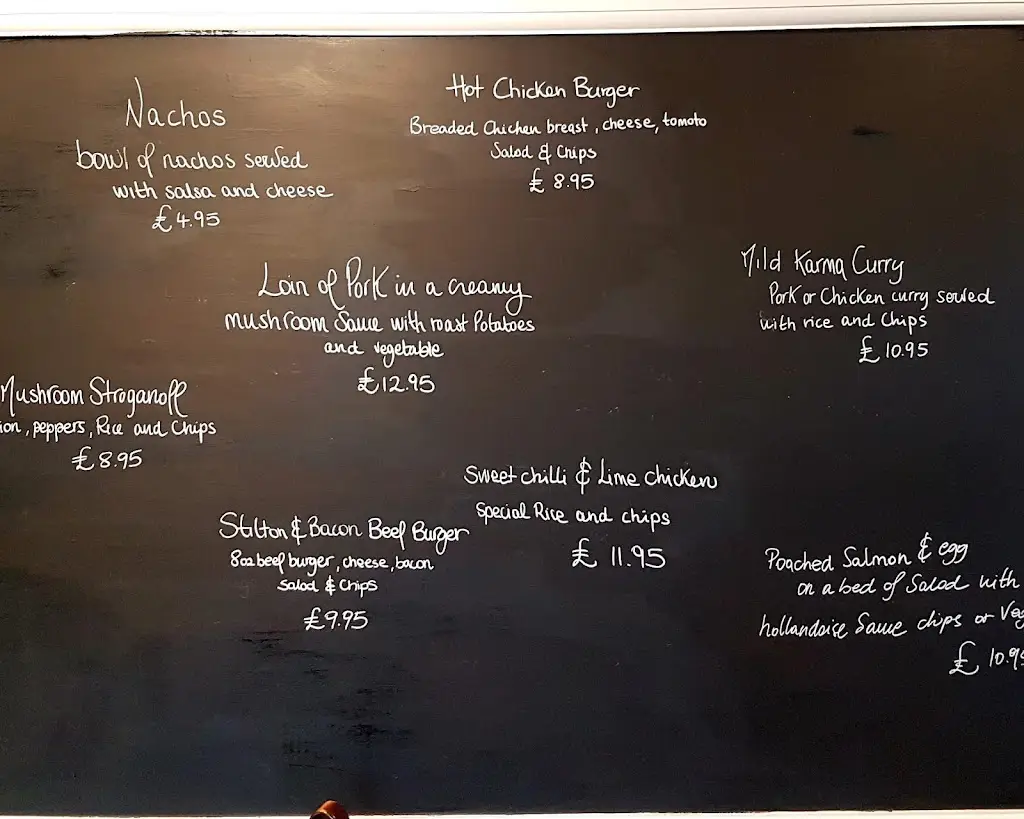 Nachos
bowl of nachos served
with salsa and cheese
£4.95
Hot Chicken Burger
Breaded Chicken breast, cheese, tomato
Salad & Chips
£ 8.95
Loin of Pork in a creamy
mushroom Sauce with roast Potatoes
and vegetable
£12.95
Mild Karma Curry
Pork or Chicken curry served
with rice and Chips
£ 10.95
Mushroom Stroganoff
, peppers, Rice and Chips
£8.95
Sweet chilli & Lime chicken
Special Rice and chips
£ 11.95
Stilton & Bacon Beef Burger
8oz beef burger, cheese, bacon
Salad & Chips
£9.95
Poached Salmon & egg
on a bed of Salad with
hollandaise Sauce chips or
£